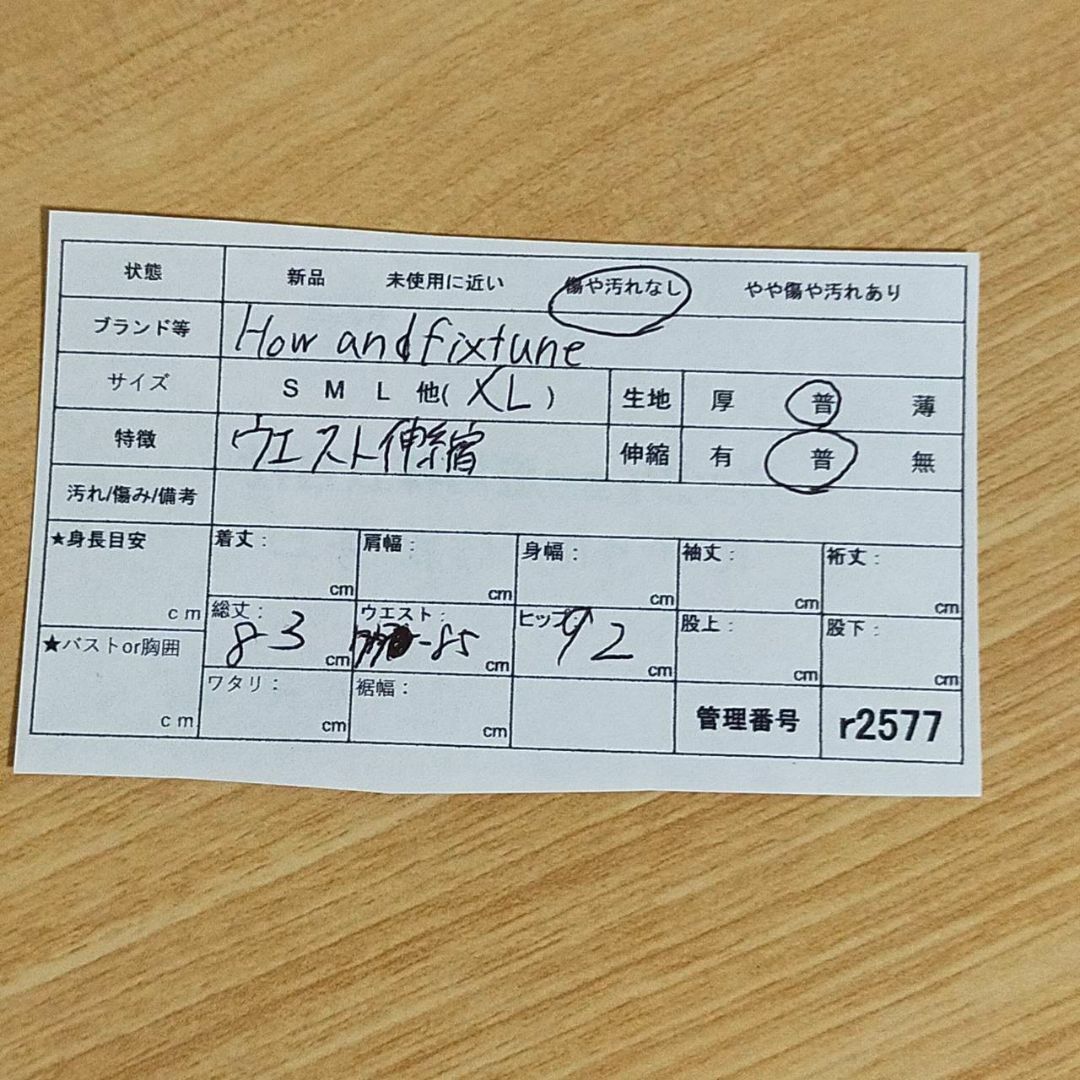 状態 新品 未使用に近い 傷や汚れなし やや傷や汚れあり
ブランド等 How and fixtune
サイズ S M L 他( XL ) 生地 厚 普 薄
特徴 ウエスト伸縮 伸縮 有 普 無
汚れ/傷み/備考
★身長目安 cm 着丈: cm 肩幅: cm 身幅: cm 袖丈: cm 裄丈: cm
総丈: 83 cm ウエスト: -85 cm ヒップ: 92 cm 股上: cm 股下: cm
★バストor胸囲 cm ワタリ: cm 裾幅: cm 管理番号 r2577